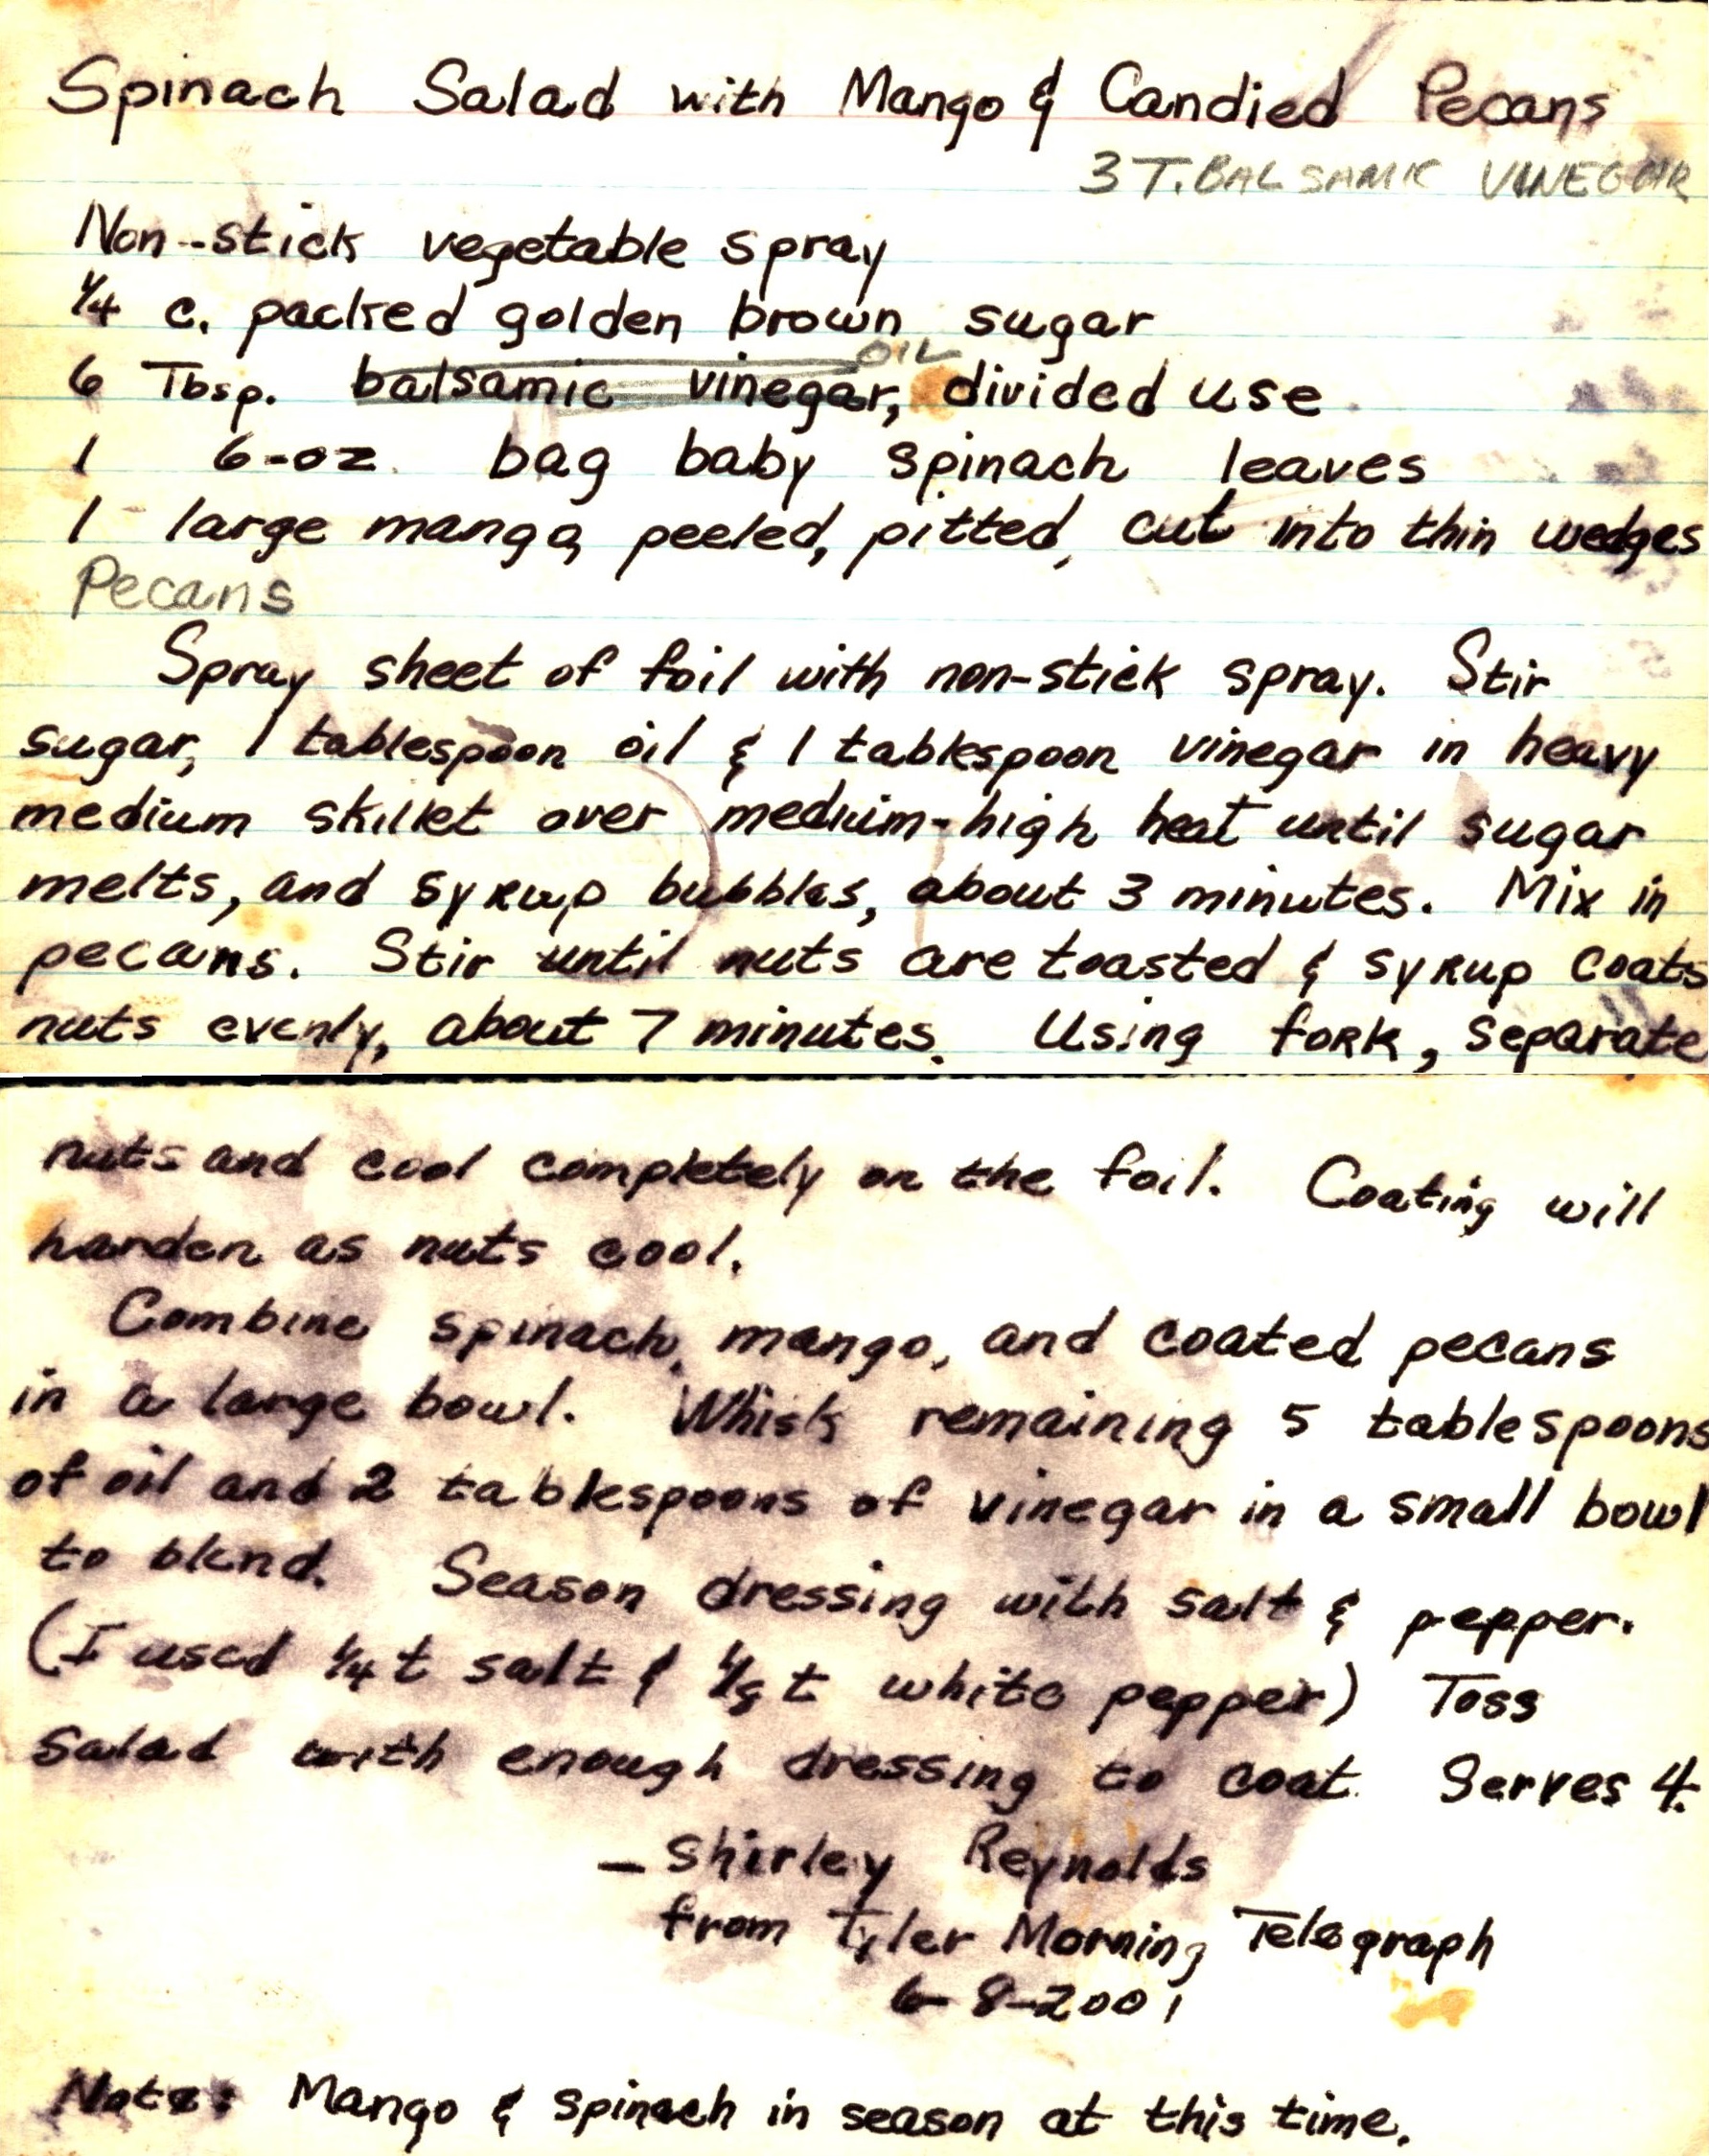 Spinach Salad with Mango & Candied Pecans
3 T. BALSAMIC VINEGAR
Non-stick vegetable spray
1/4 c. packed golden brown sugar
OIL
6 Tbsp. balsamic vinegar, divided use
1 6-oz. bag baby spinach leaves
1 large mango, peeled, pitted, cut into thin wedges
Pecans
Spray sheet of foil with non-stick spray. Stir
sugar, 1 tablespoon oil & 1 tablespoon vinegar in heavy
medium skillet over medium-high heat until sugar
melts, and syrup bubbles, about 3 minutes. Mix in
pecans. Stir until nuts are toasted & syrup coats
nuts evenly, about 7 minutes. Using fork, separate
nuts and cool completely on the foil. Coating will
harden as nuts cool.
Combine spinach, mango, and coated pecans
in a large bowl. Whisk remaining 5 tablespoons
of oil and 2 tablespoons of vinegar in a small bowl
to blend. Season dressing with salt & pepper.
(I used 1/4 t salt & 1/8 t white pepper) Toss
salad with enough dressing to coat. Serves 4.
- Shirley Reynolds
from Tyler Morning Telegraph
6-8-2001
Note: Mango & spinach in season at this time.